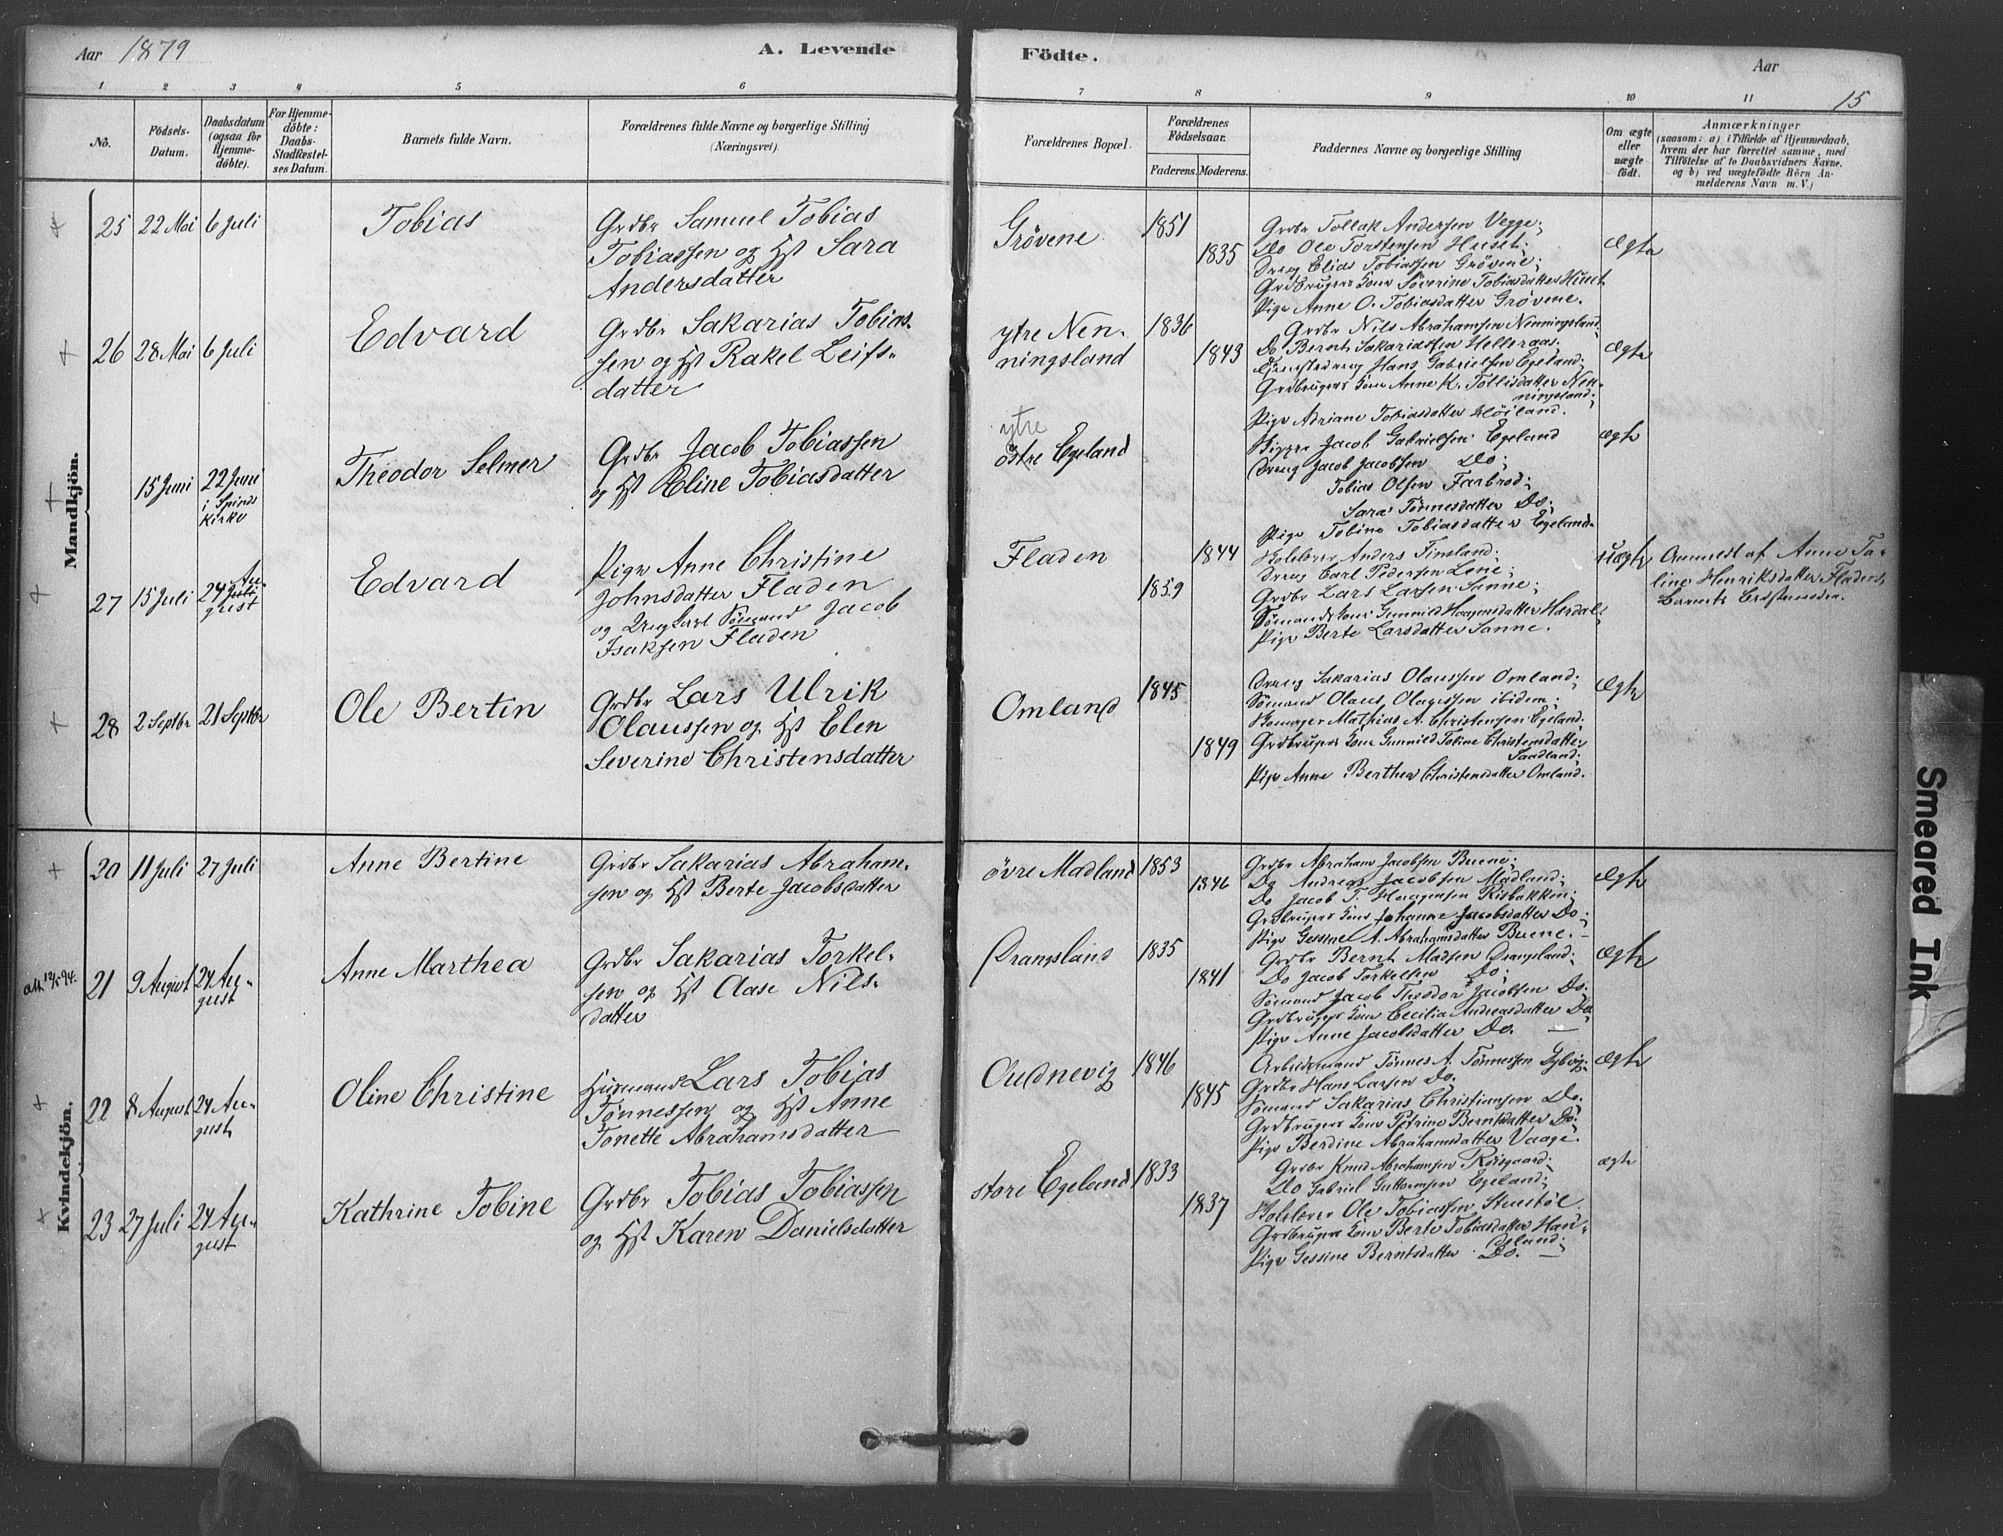 Aar 1879
A. Levende
Födte.
Aar
15
1
2
3
4
5
6
7
8
9
10
11
No.
Födsels-
Datum.
Daabsdatum
(ogsaa for
Hjemme-
döbte).
For Hjemme-
döbte:
Daabs-
Stadfæstel-
ses Datum.
Barnets fulde Navn.
Forældrenes fulde Navne og borgerlige Stilling
(Næringsvei).
Forældrenes Bopæl.
Forældrenes
Födselsaar.
Faderens. Moderens.
Faddernes Navne og borgerlige Stilling
Om ægte
eller
uægte
födt.
Anmærkninger
(saasom: a) i Tilfælde af Hjemmedaab,
hvem der har forrettet samme, med
Tilföielse af to Daabsvidners Navne,
og b) ved uægtefödte Börn An-
melderens Navn m. V.)
Mandkjön.
25 22 Mai 6 Juli
Tobias
Grdbr Samuel Tobias
Tobiassen og Hst Sara
Andersdatter
Grövene
1851
1835
Grdbr Tollak Andersen Vegge;
Do Ole Torstensen Huset;
Dreng Elias Tobiassen Grövene;
Grdbrugers Kone Söverine Tobiasdatter Huset
Pige Anne O. Tobiasdatter Grövene.
Ægte
26 28 Mai 6 Juli
Edvard
Grdbr Sakarias Tobias-
sen og Hst Rakel Leifs-
datter
ytre Nen-
ningsland
1836
1843
Grdbr Nils Abrahamsen Nenningsland
Do Bernt Sakariassen Helleraas;
Tjenstedreng Hans Gabrielsen Egeland;
Grdbrugers Kone Anne K. Tollisdatter Nen-
ningsland;
Pige Adriane Tobiasdatter Höiland.
Ægte
15 Juni 22 Juni
i Spinds
Kirke
Theodor Selmer
Grdbr Jacob Tobiassen
og Hst Eline Tobiasdatter
ytre
östre Egeland
Skipper Jacob Gabrielsen Egeland
Dreng Jacob Jacobsen Do;
Tobias Olsen Farbrod;
Sara Tönnesdatter Do;
Pige Tobine Tobiasdatter Egeland.
Ægte
27 15 Juli 24 Au-
gust
Edvard
Pige Anne Christine
Johnsdatter Fladen
og Ungkarl Sömand Jacob
Isaksen Fladen
Fladen
1844
1859
Skolelærer Anders Timsland;
Dreng Carl Pedersen Lene;
Grdbr Lars Larsen Sanne;
Sömands Kone Gunnild Haagensdatter Hardal
Pige Berte Larsdatter Sanne.
Uægte
Anmeldt af Anne Ta-
line Henriksdatter Fladen,
Barnets Bedstemoder.
28 2 Septbr 21 Septbr
Ole Bertin
Grdbr Lars Ulrik
Olaussen og Hst Elen
Severine Christensdatter
Omland
1845
1849
Dreng Sakarias Olaussen Omland;
Sömand Olaus Olagissen ibidem;
Skomager Mathias A. Christensen Egeland.
Grdbrugers Kone Gunnild Toline Christensdatter
Sandland;
Pige Anne Berthea Christensdatter Omland.
Ægte
Kvindekjön.
20 11 Juli 27 Juli
Anne Bertine
Grdbr Sakarias Abraham-
sen og Hst Berte Jacobsdatter
övre Madland
1853
1846
Grdbr Abraham Jacobsen Buene;
Do Andreas Jacobsen Madland;
Do Jacob T. Haagensen Risbakken;
Grdbrugers Kone Johanne Jacobsdatter Do;
Pige Gessine A. Abrahamsdatter Buene.
Ægte
21 9 August 24 Au-
gust
Anne Marthea
Grdbr Sakarias Torkel-
sen og Hst Aase Nils-
datter
Drangsland
1835
1841
Grdbr Bernt Madsen Drangsland;
Do Jacob Torkelsen Do;
Sömand Jacob Theodor Jacobsen Do.
Grdbrugers Kone Cecilia Andreasdatter Do.
Pige Anne Jacobsdatter Do.
Ægte
22 8 August 24 Au-
gust
Oline Christine
Husmand Lars Tobias
Tönnessen og Hst Anne
Tonette Abrahamsdatter
Oudnevig
1846
1845
Arbeidsmand Tönnes A. Tönnessen
Grdbr Hans Larsen Do.
Sömand Sakarias Christiansen Do.
Grdbrugers Kone Petrine Berntsdatter Do;
Pige Berdine Abrahamsdatter Vaage.
Ægte
23 27 Juli 24 Au-
gust
Kathrine Tobine
Grdbr Tobias Tobiassen
og Hst Karen Danielsdatter
store Egeland
1833
1837
Grdbr Knud Abrahamsen Röisgaard;
Do Gabriel Guttormsen Egeland;
Skolelærer Ole Tobiassen Stuestöl
Grdbrugers Kone Berte Tobiasdatter Hau-
geland;
Pige Gessine Berntsdatter Do.
ægte
Smeared Ink